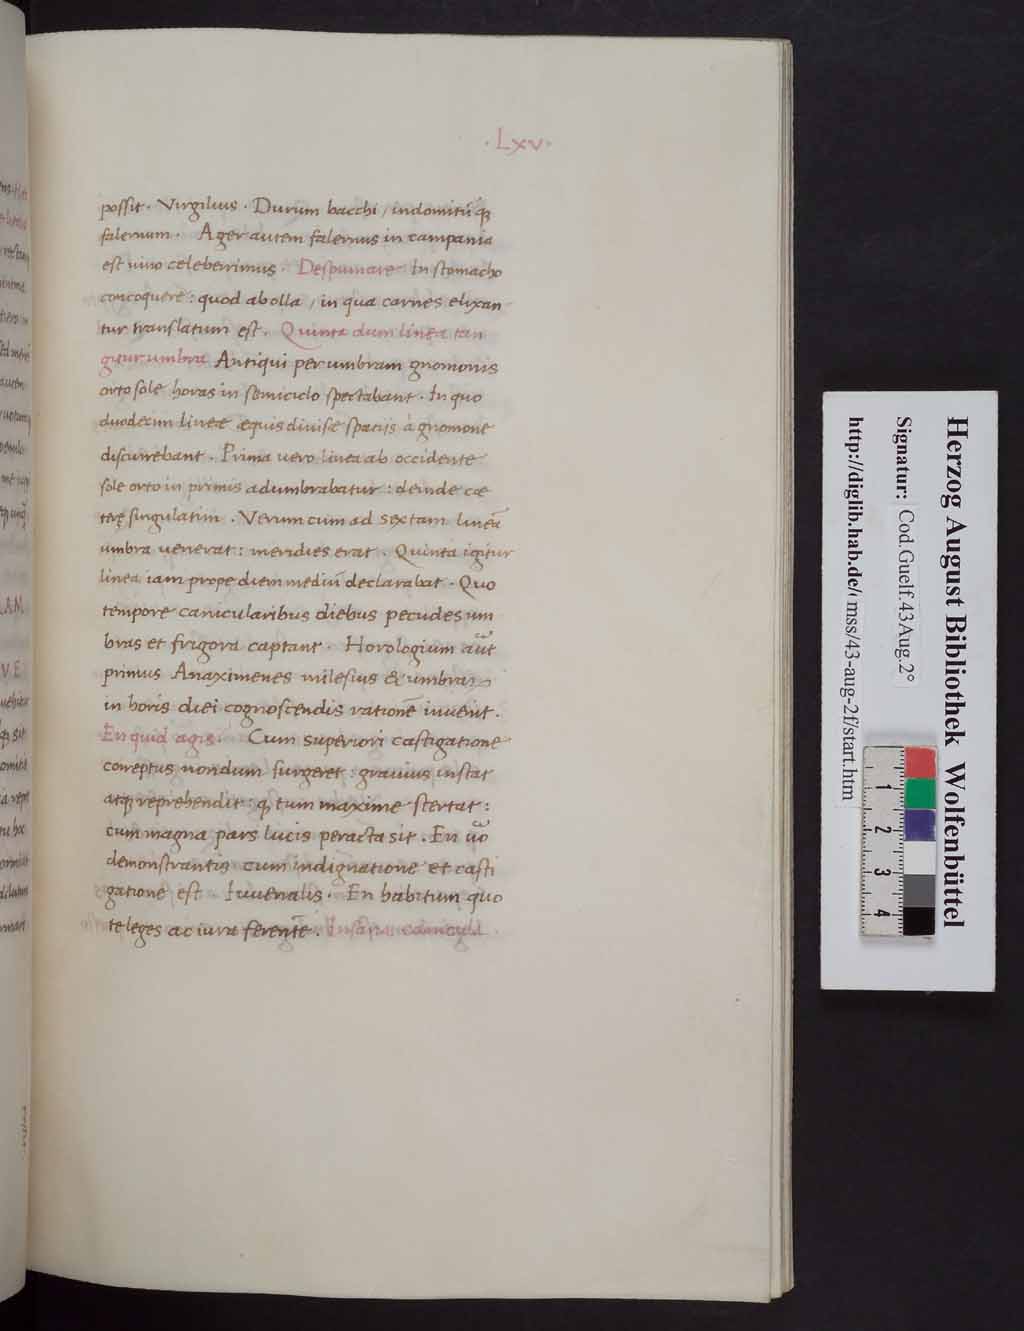 · Lxv ·
possit · Virgilius · Durum bacchi / indomitũ q;
falernum · Ager autem falernus in campania
est uino celeberrimus · Despumare In stomacho
concoquere : quod ab olla / in qua carnes elixan
tur translatum est · Quinta dum linea tan
gitur umbra Antiqui per umbram gnomonis
orto sole horas in semiciclo spectabant · In quo
duodecim lineæ æquis diuisæ spatiis à gnomone
discurrebant · Prima uero linea ab occidente
sole orto in primis adumbrabatur : deinde cæ
terę singulatim · Verum cum ad sextam lineã
umbra uenerat : meridies erat · Quinta igitur
linea iam prope diem mediũ declarabat · Quo
tempore canicularibus diebus pecudes um
bras et frigora captant · Horologium aũt
primus Anaximenes milesius & umbrarꝝ
in horis diei cognoscendis rationẽ inuenit ·
En quid agis · Cum superiori castigatione
correptus nondum surgeret : grauius instat
atq; reprehendit : q; tum maxime stertat :
cum magna pars lucis peracta sit · En uõ
demonstrantis cum indignatione et casti
gatione est · Iuuenalis · En habitum quo
te leges ac iura ferentẽ · Insana canicula ·
Herzog August Bibliothek Wolfenbüttel
Signatur: Cod.Guelf.43 Aug.2°
http://diglib.hab.de/ mss/43-aug-2f/start.htm
1
2
3
4